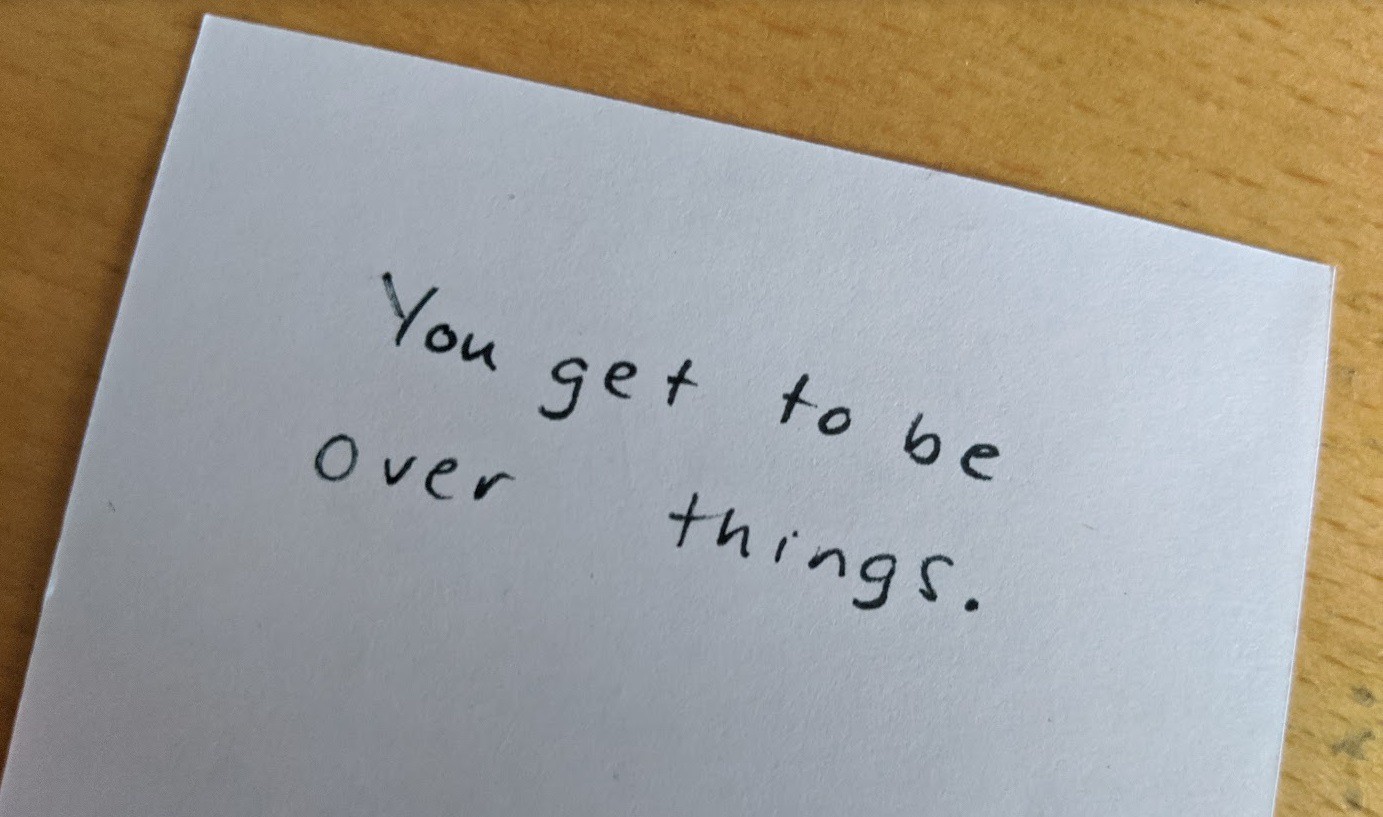 You get to be
over things.